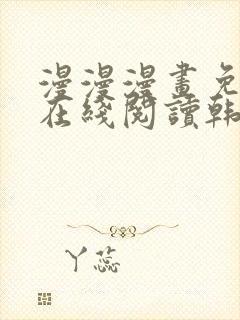 漫漫漫畫免
在綫閱讀韩
丫蕊